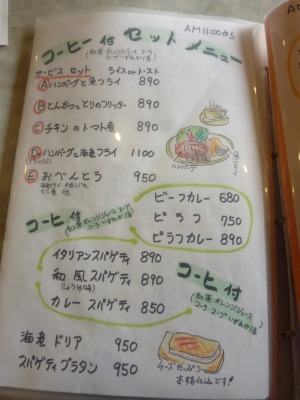 AM11:00から
コーヒー付 セット メニュー
(紅茶 オレンジジュース コーラ
スープ いずれか1杯)
サービス セット ライス or トースト
Ⓐ ハンバーグと魚フライ 890
Ⓑ とんかつととりのフリッター 890
Ⓒ チキンのトマト煮 890
Ⓓ ハンバーグと海老フライ 1100
(デラックス)
Ⓔ おべんとう 950
ハンバーグ
コーヒー付
(紅茶・オレンジジュース・コーラ・スープいずれか1杯)
ビーフカレー 680
ピラフ 750
ピラフカレー 890
イタリアンスパゲティ 890
和風スパゲティ 890
(しょうゆ味)
カレースパゲティ 850
コーヒー付
(紅茶・オレンジジュース
コーラ・スープいずれか1杯)
海老ドリア 950
スパゲティグラタン 950
チーズたっぷり
本格仕込です!